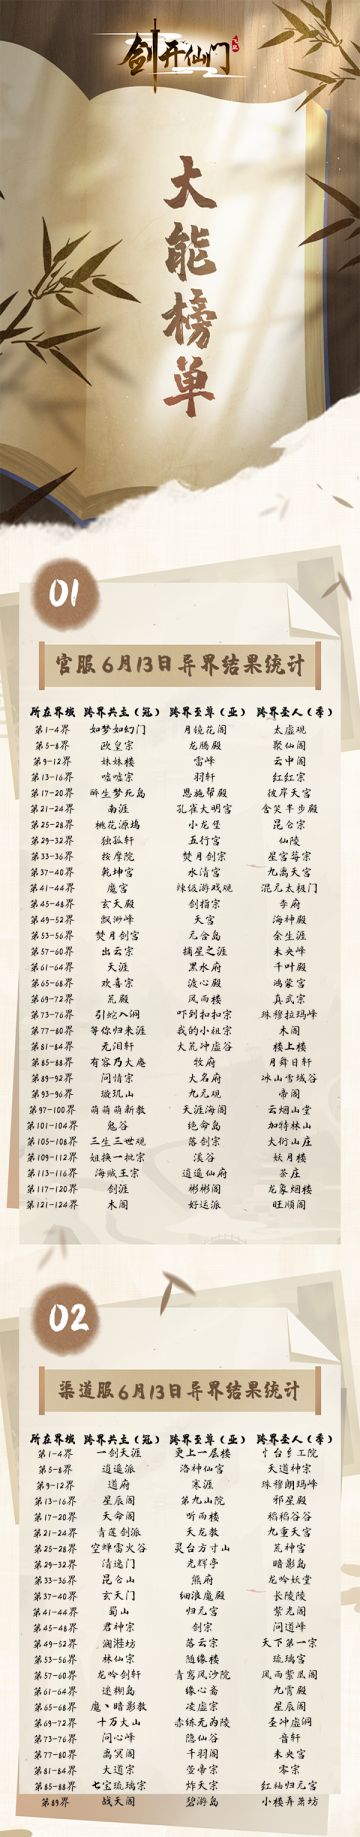 剑开仙门
大能榜单
01
官服6月13日异界结果统计
所在界域 跨界共主（冠） 跨界至尊（亚） 跨界圣人（季）
第1-4界 如梦如幻门 月镜花阁 太虚观
第5-8界 欧皇宗 龙腾殿 聚仙阁
第9-12界 妹妹楼 雷峰 云中阁
第13-16界 嘘嘘宗 羽轩 红红宗
第17-20界 醉生梦死岛 恩施帮殿 彼岸天宫
第21-24界 南涯 孔雀大明宫 含笑半步殿
第25-28界 桃花源坞 小龙堡 昆仑宗
第29-32界 独孤轩 五行宫 仙陵
第33-36界 按摩院 焚月剑宗 星宫莓宗
第37-40界 乾坤宫 水清宫 九离天宫
第41-44界 魔宫 辣级游戏观 混元太极门
第45-48界 玄天殿 剑指宗 李府
第49-52界 飘渺峰 天宫 海神殿
第53-56界 焚月剑宫 元合岛 余生涯
第57-60界 出云宗 摘星之涯 未央峰
第61-64界 天涯 黑水府 千叶殿
第65-68界 欢喜宗 波心殿 鸿蒙宫
第69-72界 荒殿 风雨楼 真武宗
第73-76界 引蛇入洞 吓到扣扣宗 珠穆拉玛峰
第77-80界 等你归来涯 我的小祖宗 木阁
第81-84界 无泪轩 大荒冲虚谷 楼上楼
第85-88界 有容乃大庵 牧府 月舞日轩
第89-92界 问情宗 大名府 冰山雪域谷
第93-96界 璇玑山 九元观 帝阁
第97-100界 萌萌萌新教 天涯海阁 云烟山堂
第101-104界 鬼谷 绝命岛 加特林山
第105-108界 三生三世观 落剑宗 大衍山庄
第109-112界 姐换一批宗 溪谷 妖月楼
第113-116界 海贼王宗 逍遥仙府 茶庄
第117-120界 剑涯 彬彬阁 龙象烟楼
第121-124界 木阁 好运派 旺顺阁
02
渠道服6月13日异界结果统计
所在界域 跨界共主（冠） 跨界至尊（亚） 跨界圣人（季）
第1-4界 一剑天涯 更上一层楼
第5-8界 逍遥派 洛神仙宫 天道神宗
第9-12界 道府 寒涯 珠穆朗玛峰
第13-16界 星辰阁 第九山院 邪星殿
第17-20界 天命阁 听雨楼 稻稻谷谷
第21-24界 青莲剑派 天龙教 九重天宫
第25-28界 空蝉雷火谷 灵台方寸山 荒神宫
第29-32界 清逸门 光辉亭 暗影岛
第33-36界 昆仑山 熊府 龙吟妖堂
第37-40界 玄天门 细淮魔殿 长陵陵
第41-44界 蜀山 归元宫 紫光阁
第45-48界 君神宗 剑宗 问道峰
第49-52界 澜滟坊 落云宗 天下第一宗
第53-56界 林仙宗 随缘楼 琉璃宫
第57-60界 龙吟剑轩 青鸾风沙院 风雨紫凰阁
第61-64界 迷糊岛 缘心斋 九霄殿
第65-68界 魔丶暗影教 凌虚宗 星辰阁
第69-72界 十万大山 赤练无芮陵 圣冲虚洞
第73-76界 问心峰 隐仙谷 音轩
第77-80界 离冥阁 千羽阁 未央宫
第81-84界 大道宗 萱帝宗 零宗
第85-88界 七宝琉璃宗 炸天宗 红袖归元宫
第89界 战天阁 碧游岛 小楼弄萧坊